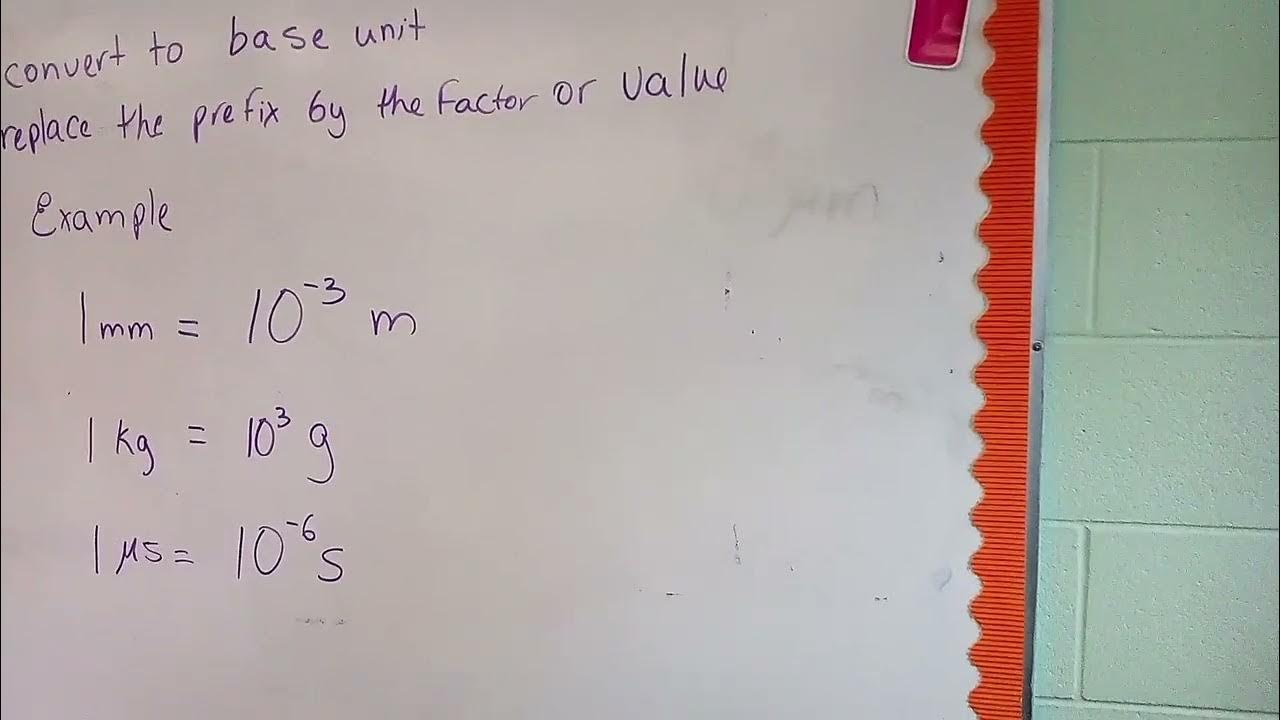 convert to base unit
replace the prefix by the factor or value
Example
1 mm = 10⁻³ m
1 kg = 10³ g
1 μs = 10⁻⁶ s